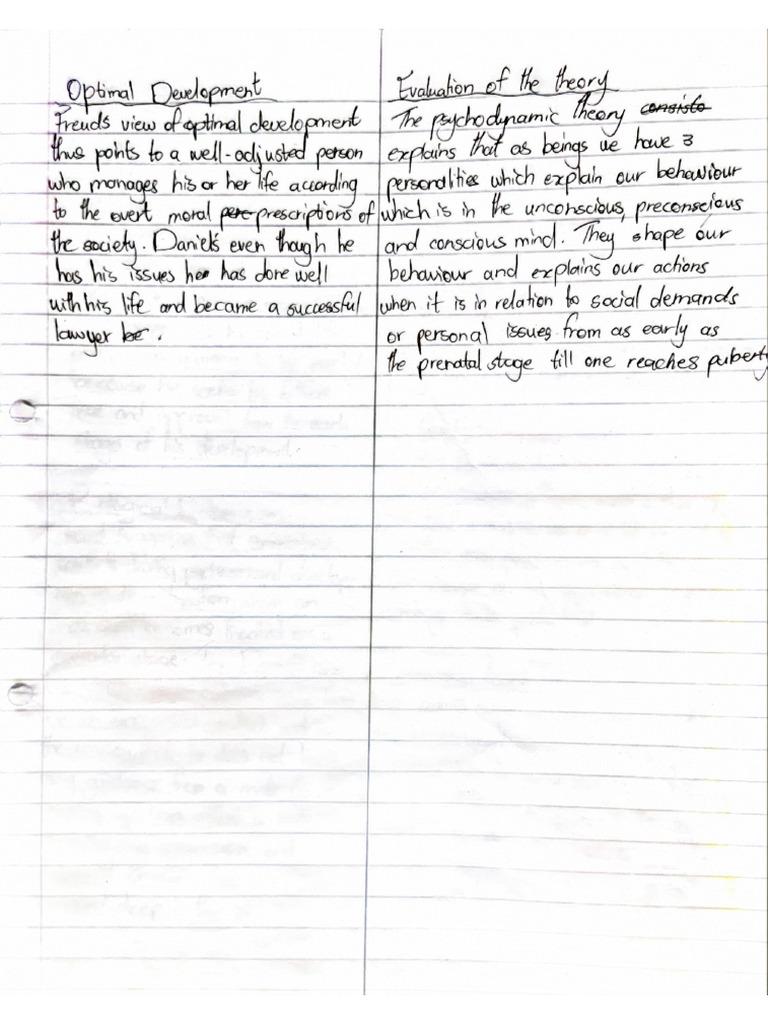 Optimal Development
Freuds view of optimal development
thus points to a well-adjusted person
who manages his or her life according
to the overt moral per prescriptions of
the society. Daniels even though he
has his issues he has done well
with his life and became a successful
lawyer be.
Evaluation of the theory
The psychodynamic theory consists
explains that as beings we have 3
personalities which explain our behaviour
which is in the unconscious, preconscious
and conscious mind. They shape our
behaviour and explains our actions
when it is in relation to social demands
or personal issues from as early as
the prenatal stage till one reaches puberty